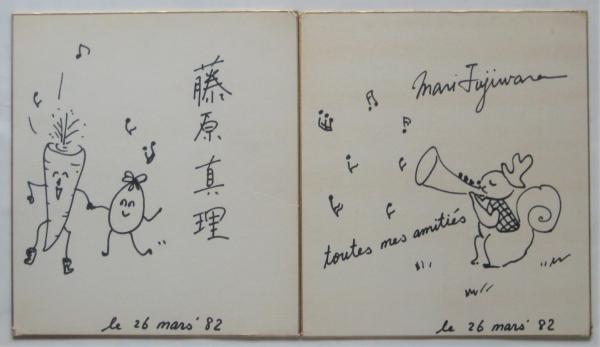 藤原真理
le 26 mars '82
Mari Fujiwara
toutes mes amitiés
le 26 mars '82